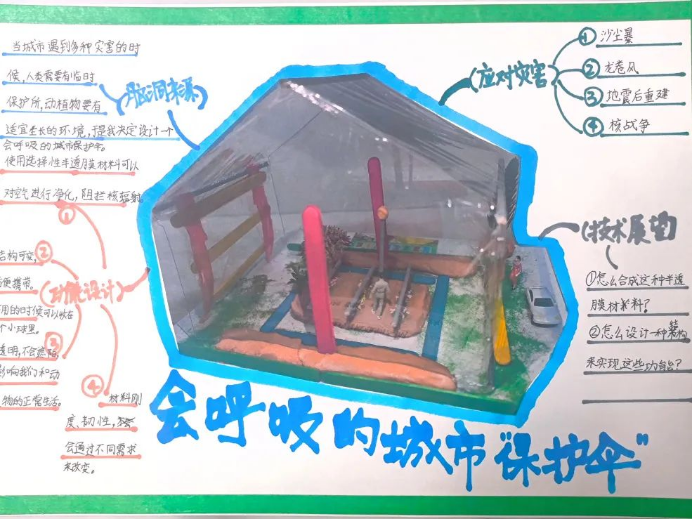 当城市遇到多种灾害的时
候,人类需要有临时
保护所,动植物要有
适宜生长的环境,于是我决定设计一个
会呼吸的城市保护伞。
脑洞来源
使用选择性半透膜材料可以
对空气进行净化,阻拦核辐射。
①
功能设计
②
结构可变,
便携带。
用的时候可以放在
个小球里。
③
透明,不会遮挡
影响我们和动
物的正常生活
④
材料刚
度、韧性,
会通过不同需求
来改变。
应对灾害
①沙尘暴
②龙卷风
③地震后重建
④核战争
技术展望
①怎么合成这种半透
膜材料?
②怎么设计一种
来实现这些功能?
会呼吸的城市“保护伞”